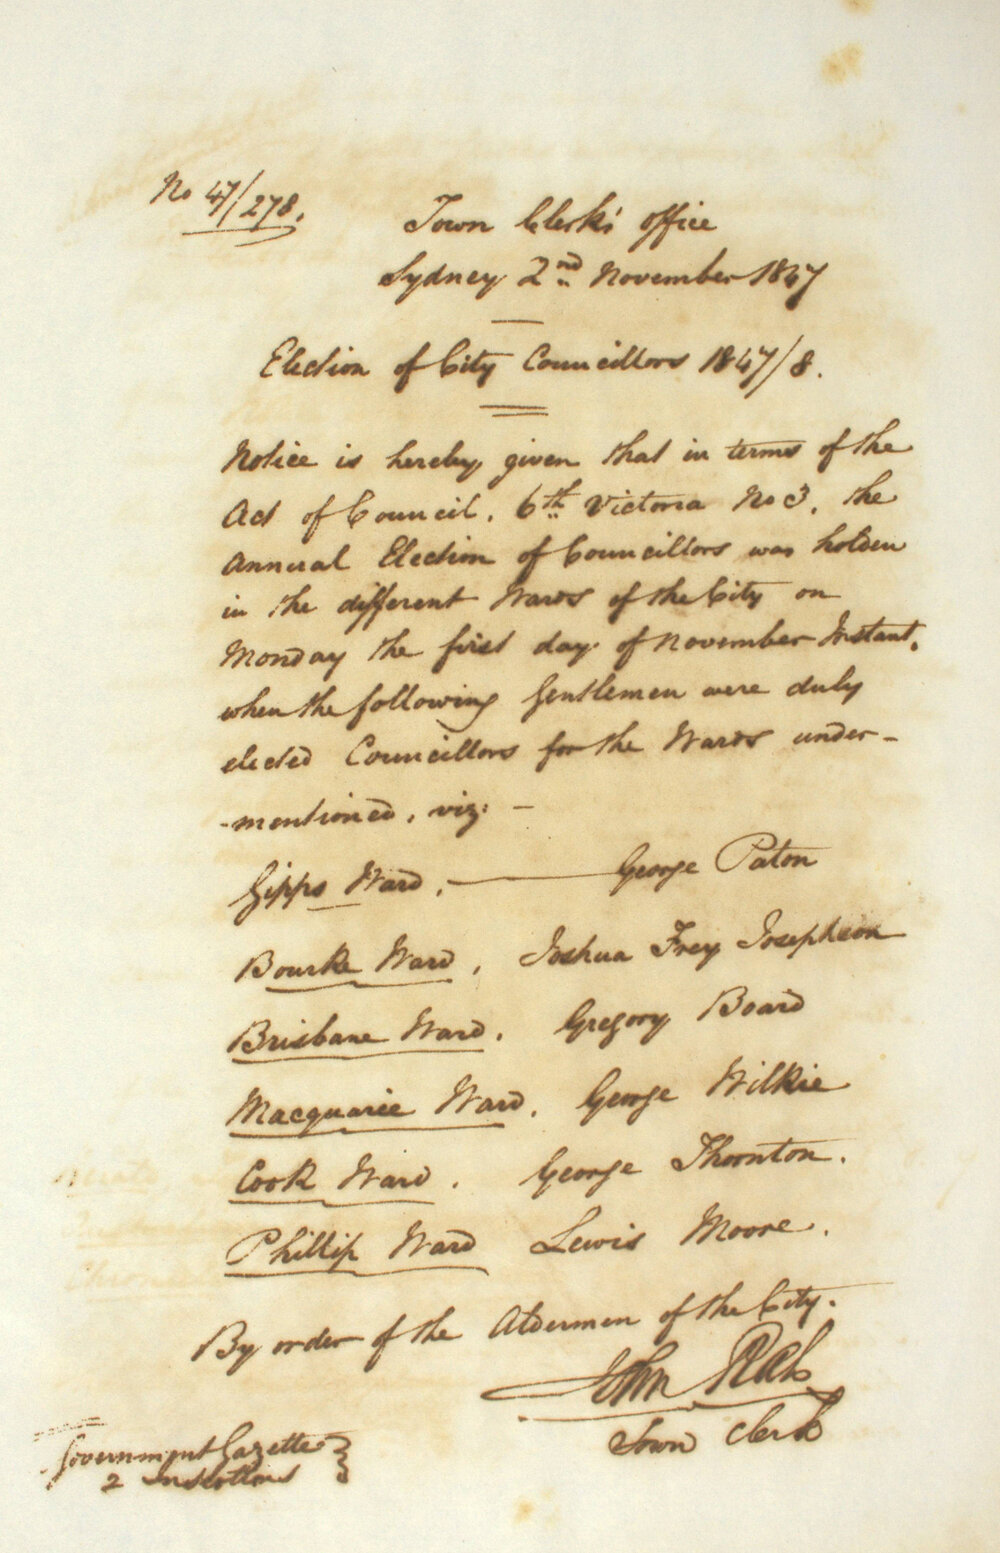 No 47/278.
Town Clerk's Office
Sydney 2nd November 1847
Election of City Councillors 1847/8.
Notice is hereby given that in terms of the
Act of Council, 6th Victoria No 3, the
Annual Election of Councillors was holden
in the different Wards of the City on
Monday the first day of November Instant,
when the following Gentlemen were duly
elected Councillors for the Wards under-
-mentioned, viz: -
Gipps Ward, George Paton
Bourke Ward, Joshua Frey Josephson
Brisbane Ward. Gregory Board
Macquarie Ward. George Wilkie
Cook Ward. George Thornton.
Phillip Ward Lewis Moore.
By order of the Aldermen of the City.
John Rae
Town Clerk
Government Gazette
2 insertions